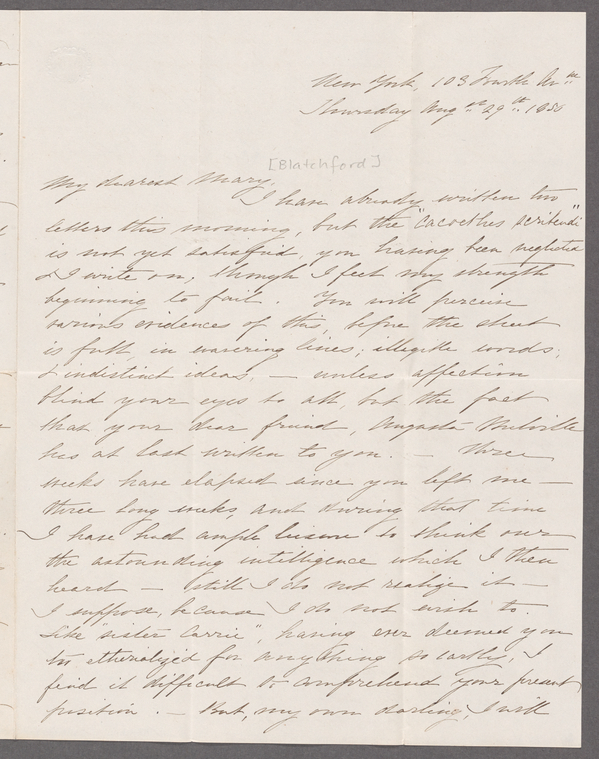 New York, 103 Fourth Avue
Thursday Aug st 29th 1850
[Blatchford]
My dearest Mary,
I have already written two
letters this morning, but the "cacoethes scribendi"
is not yet satisfied, you having been neglected
& I write on, though I feel my strength
beginning to fail. You will perceive
various evidences of this, before the sheet
is full, in wavering lines; illegible words;
& indistinct ideas, — unless affection
blind your eyes to all, but the fact
that your dear friend, Augusta Melville
has at last written to you. — Three
weeks have elapsed since you left me —
three long weeks, and during that time
I have had ample leisure to think over
the astounding intelligence which I then
heard — still I do not realize it —
I suppose, because I do not wish to.
Like "sister Carrie", having ever deemed you
too etherialized for anything so earthly, I
find it difficult to comprehend your present
position. — But, my own darling, I will